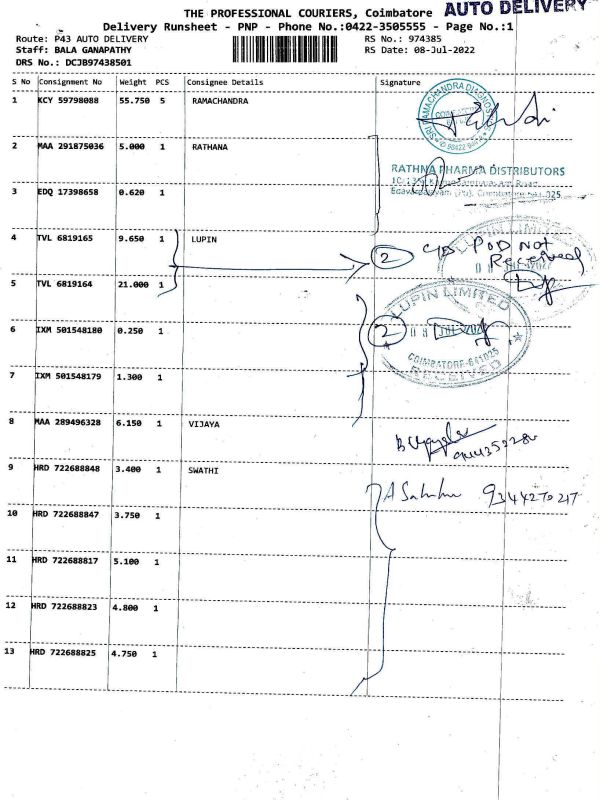 THE PROFESSIONAL COURIERS, Coimbatore
AUTO DELIVERY
Delivery Runsheet - PNP - Phone No.:0422-3505555 - Page No.:1
Route: P43 AUTO DELIVERY
RS No.: 974385
Staff: BALA GANAPATHY
RS Date: 08-Jul-2022
DRS No.: DCJB97438501
S No Consignment No Weight PCS Consignee Details Signature
1 KCY 59798088 55.750 5 RAMACHANDRA
2 MAA 291875036 5.000 1 RATHANA
RATHNA PHARMA DISTRIBUTORS
3 EDQ 17398658 0.620 1
4 TVL 6819165 9.650 1 LUPIN
2 POD Not
Received
5 TVL 6819164 21.000 1
LUPIN LIMITED
6 IXM 501548180 0.250 1
2
COIMBATORE-641025
RECEIVED
7 IXM 501548179 1.300 1
8 MAA 289496328 6.150 1 VIJAYA
9 HRD 722688848 3.400 1 SWATHI
10 HRD 722688847 3.750 1
11 HRD 722688817 5.100 1
12 HRD 722688823 4.800 1
13 HRD 722688825 4.750 1